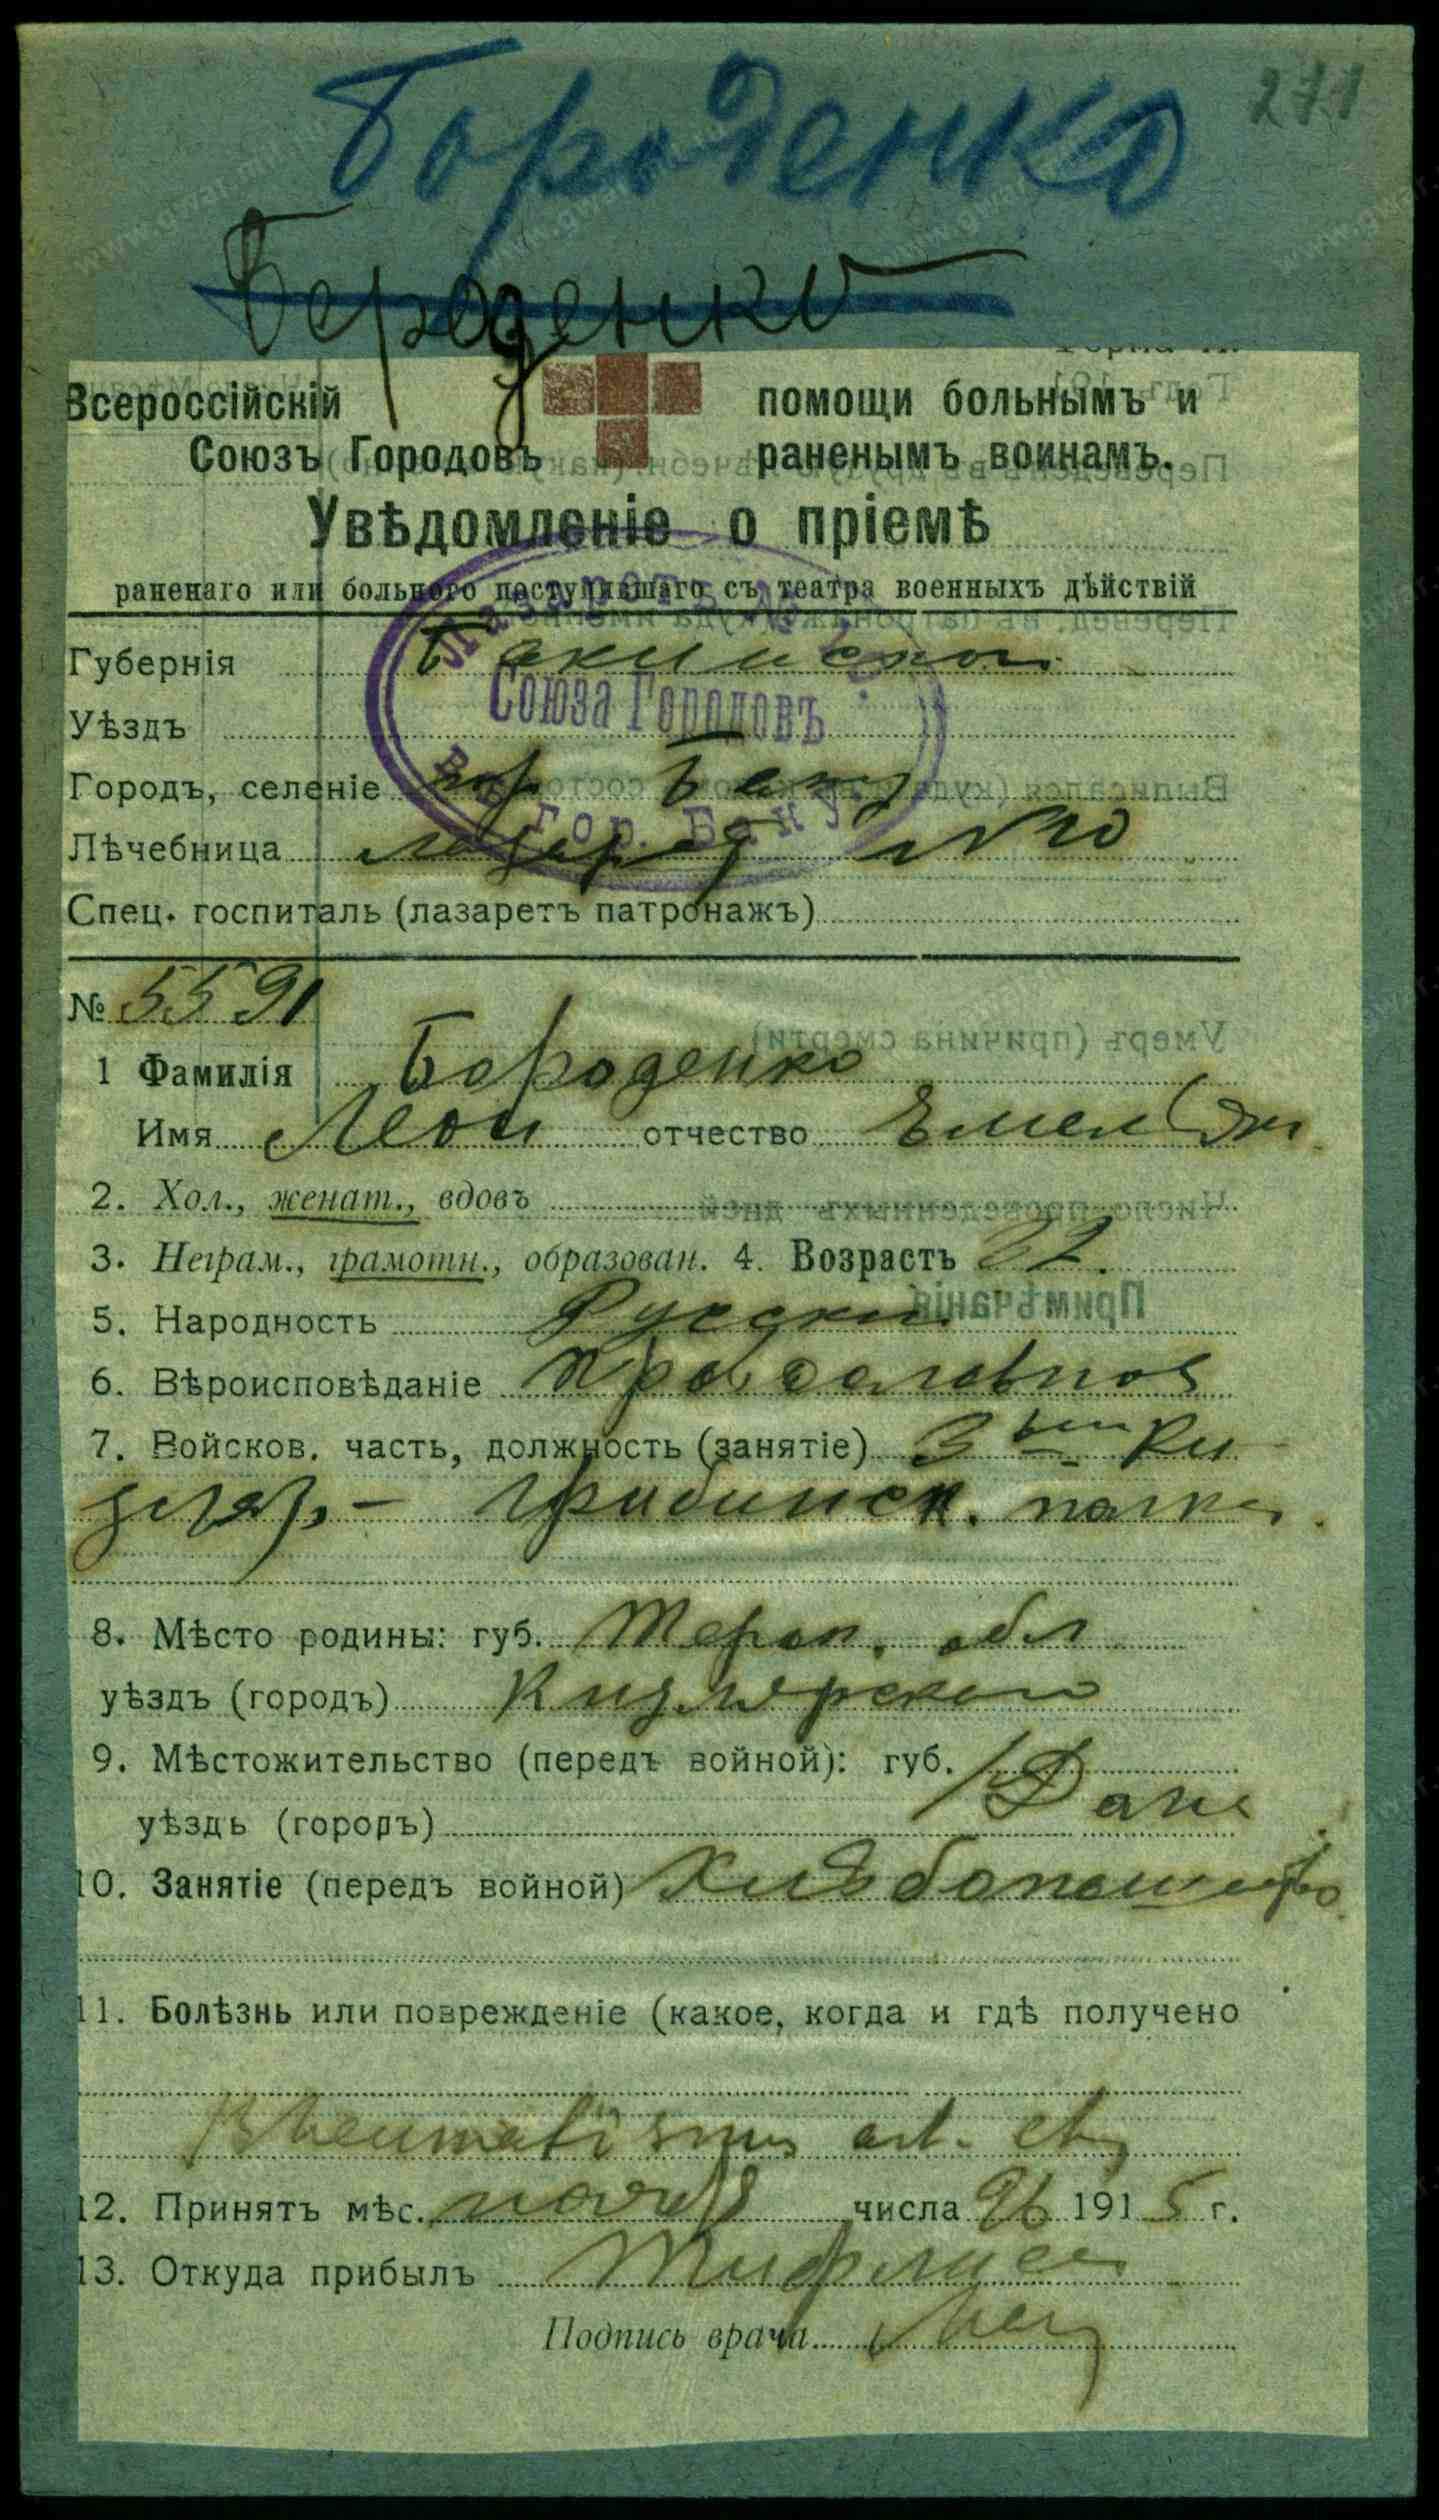 271
Бороденко
Бероденко
Всероссійскій помощи больнымъ и
Союзъ Городовъ раненымъ воинамъ.
Увѣдомленіе о пріемѣ
раненаго или больного поступившаго съ театра военныхъ дѣйствій
Губернія Бакинской
Лазаретъ №
Союза Городовъ
въ гор. Баку
Уѣздъ
Городъ, селеніе гор Баку
Лѣчебница лазарет №10
Спец. госпиталь (лазаретъ патронажъ)
№ 5591
1 Фамилія Бороденко
Имя Леон отчество Емельян.
2. Хол., женат., вдовъ
3. Неграм., грамотн., образован. 4. Возрастъ 22.
5. Народность Русский
6. Вѣроисповѣданіе Православное
7. Войсков. часть, должность (занятіе) 3 Ки-
зляр.- Гребинск. полка.
8. Мѣсто родины: губ. Терск. обл
уѣздъ (городъ) Кизлярскаго
9. Мѣстожительство (передъ войной): губ.
уѣздъ (городъ)
10. Занятіе (передъ войной) Хлѣбопашество
11. Болѣзнь или поврежденіе (какое, когда и гдѣ получено
Rheumatismus art.
12. Принятъ мѣс. нояб числа 26 1915 г.
13. Откуда прибылъ Тифлиса
Подпись врача